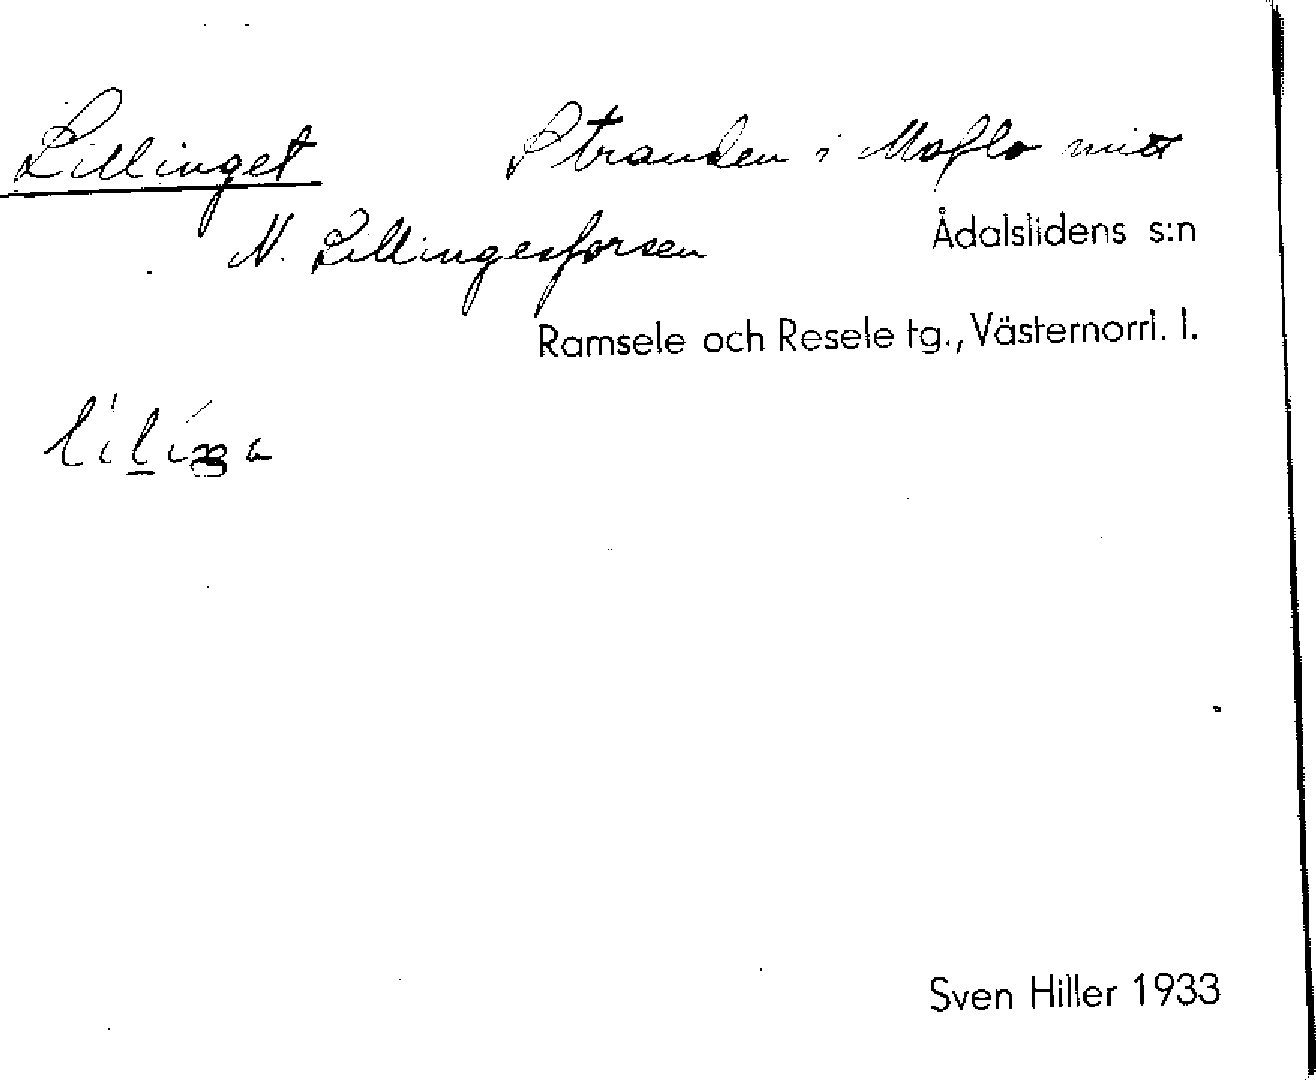 Lillinget Stranden i Moflo mitt
N. Lillingesforsen Ådalslidens s:n
Ramsele och Resele tg., Västernorrl. l.
Sven Hiller 1933